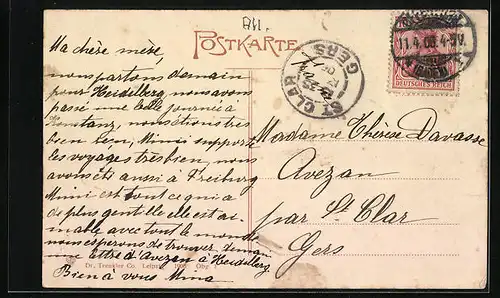 AH.
POSTKARTE
Ma chère mère,
nous partons demain
pour Heidelberg, nous avons
passé une belle journée à
Constanz, nous étions très
bien bien, Mimi supporte
les voyages très bien, nous
avons été aussi à Freiburg
Mimi est tout ce qui a
de plus gentille elle est ai-
mable avec tout le monde
nous esperons de trouver demain
une lettre d'Avezan à Heidelberg
Bien à vous Mina
Dr. Trenkler Co. Leipzig
ST CLAR
GERS
11.4.
DEUTSCHES REICH
Madame Thérèse Davasse
Avezan
par St Clar
Gers